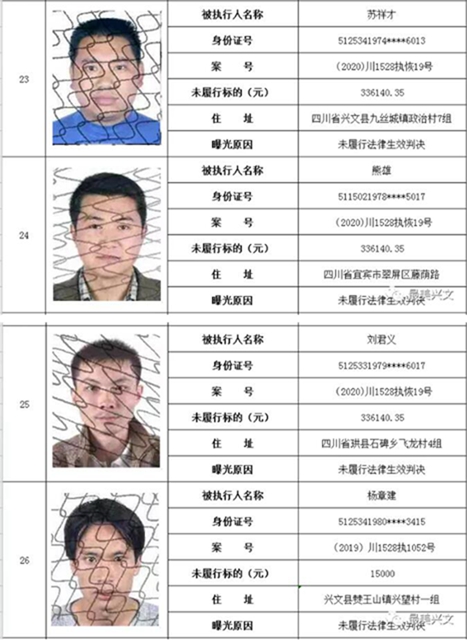 23
被执行人名称 苏祥才
身份证号 5125341974****6013
案 号 (2020)川1528执恢19号
未履行标的(元) 336140.35
住 址 四川省兴文县九丝城镇政治村7组
曝光原因 未履行法律生效判决
24
被执行人名称 熊雄
身份证号 5115021978****5017
案 号 (2020)川1528执恢19号
未履行标的(元) 336140.35
住 址 四川省宜宾市翠屏区藤荫路
曝光原因 未履行法律生效判决
最美兴文
25
被执行人名称 刘君义
身份证号 5125331979****6017
案 号 (2020)川1528执恢19号
未履行标的(元) 336140.35
住 址 四川省珙县石碑乡飞龙村4组
曝光原因 未履行法律生效判决
26
被执行人名称 杨章建
身份证号 5125341980****3415
案 号 (2019)川1528执1052号
未履行标的(元) 15000
住 址 兴文县僰王山镇兴望村一组
曝光原因 未履行法律生效判决
最美兴文